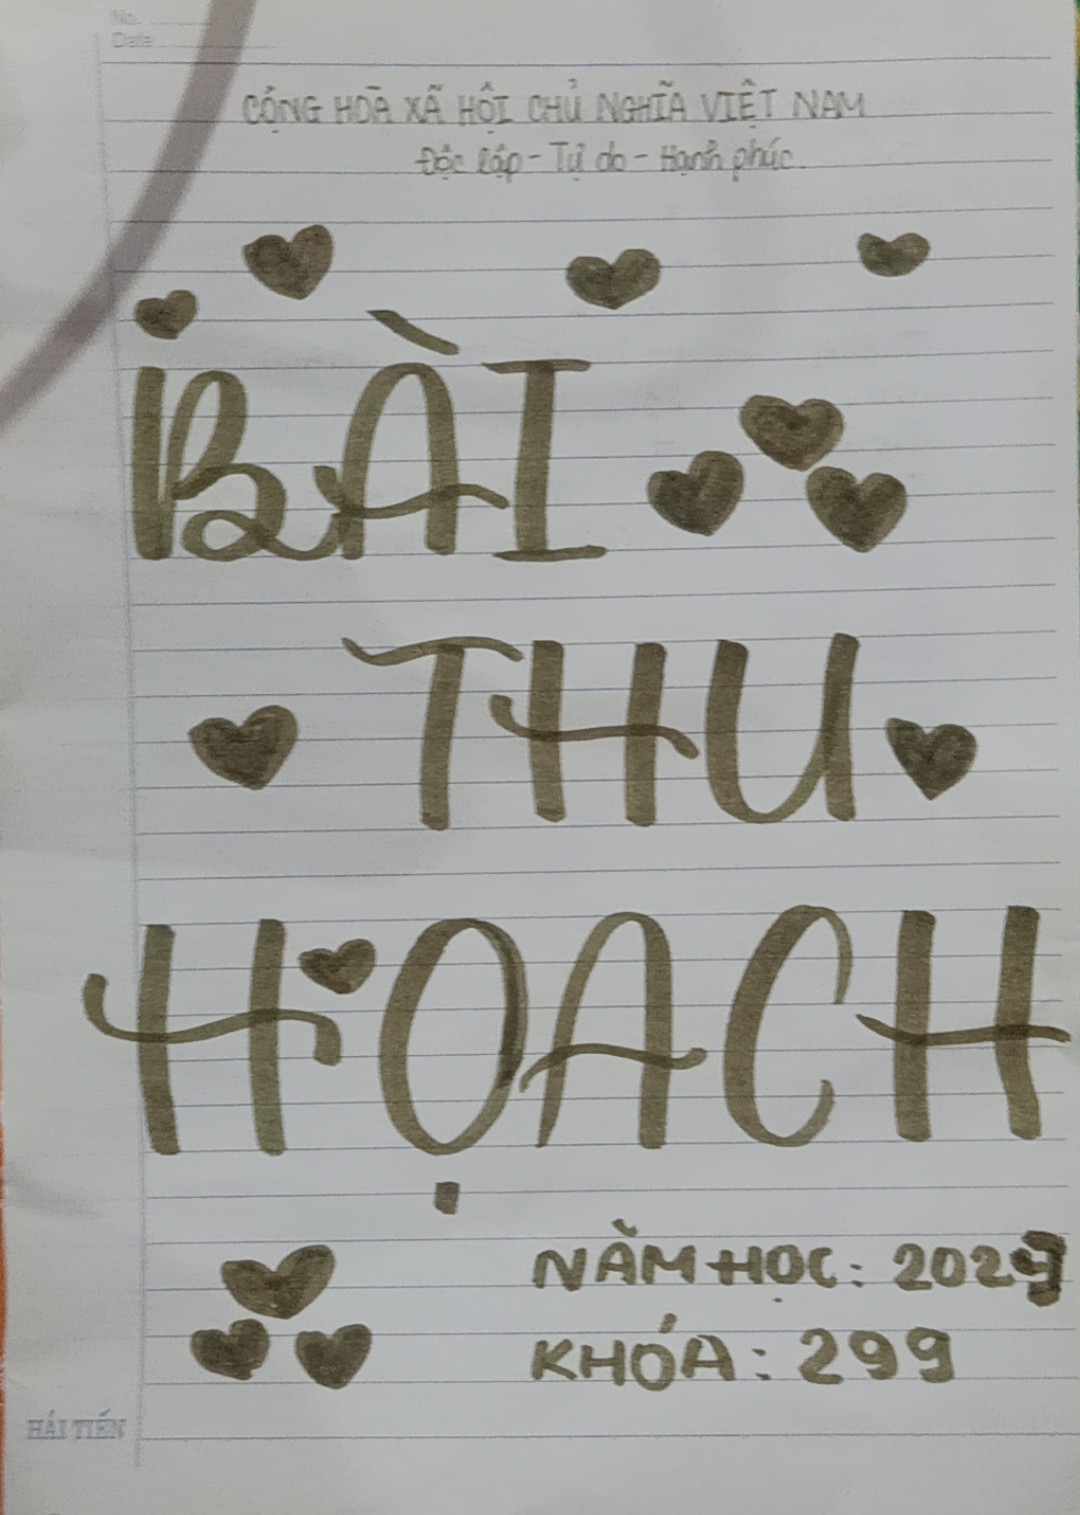 No.
Date
CỘNG HOÀ XÃ HỘI CHỦ NGHĨA VIỆT NAM
Độc lập - Tự do - Hạnh phúc
BÀI
THU
HOẠCH
NĂM HỌC:
KHÓA: 299
HẢI TIẾN